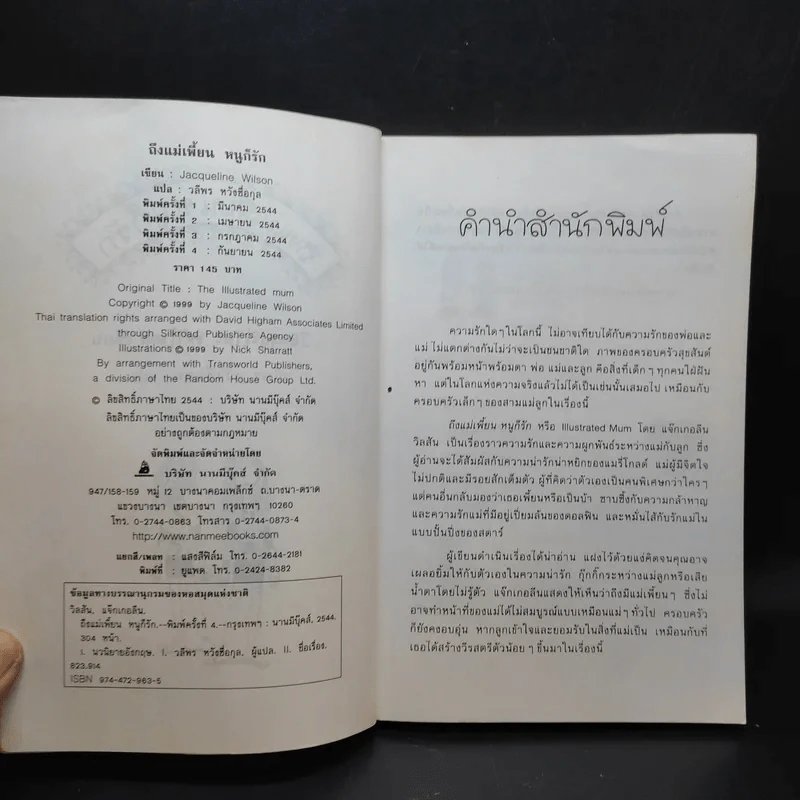 ถึงแม่เพี้ยน หนูก็รัก
เขียน : Jacqueline Wilson
แปล : วลีพร หวังซื่อกุล
พิมพ์ครั้งที่ 1 : มีนาคม 2544
พิมพ์ครั้งที่ 2 : เมษายน 2544
พิมพ์ครั้งที่ 3 : กรกฎาคม 2544
พิมพ์ครั้งที่ 4 : กันยายน 2544
ราคา 145 บาท
Original Title : The Illustrated mum
Copyright © 1999 by Jacqueline Wilson
Thai translation rights arranged with David Higham Associates Limited
through Silkroad Publishers Agency
Illustrations © 1999 by Nick Sharratt
By arrangement with Transworld Publishers,
a division of the Random House Group Ltd.
© ลิขสิทธิ์ภาษาไทย 2544 : บริษัท นานมีบุ๊คส์ จำกัด
ลิขสิทธิ์ภาษาไทยเป็นของบริษัท นานมีบุ๊คส์ จำกัด
อย่างถูกต้องตามกฎหมาย
จัดพิมพ์และจัดจำหน่ายโดย
บริษัท นานมีบุ๊คส์ จำกัด
947/158-159 หมู่ 12 บางนาคอมเพล็กซ์ ถ.บางนา-ตราด
แขวงบางนา เขตบางนา กรุงเทพฯ 10260
โทร. 0-2744-0863 โทรสาร 0-2744-0873-4
http://www.nanmeebooks.com
แยกสี/เพลท : แสงสีฟิล์ม โทร. 0-2644-2181
พิมพ์ที่ : ยูแพด โทร. 0-2424-8382
ข้อมูลทางบรรณานุกรมของหอสมุดแห่งชาติ
วิลสัน, แจ๊กเกอลีน.
ถึงแม่เพี้ยน หนูก็รัก.--พิมพ์ครั้งที่ 4.--กรุงเทพฯ : นานมีบุ๊คส์, 2544.
304 หน้า.
1. นวนิยายอังกฤษ. I. วลีพร หวังซื่อกุล, ผู้แปล. II. ชื่อเรื่อง.
823.914
ISBN 974-472-963-5
คำนำสำนักพิมพ์
ความรักใดๆ ในโลกนี้ ไม่อาจเทียบได้กับความรักของพ่อและ
แม่ ไม่แตกต่างกันไม่ว่าจะเป็นชนชาติใด ภาพของครอบครัวสุขสันต์
อยู่กันพร้อมหน้าพร้อมตา พ่อ แม่และลูก คือสิ่งที่เด็กๆ ทุกคนใฝ่ฝัน
หา แต่ในโลกแห่งความจริงแล้วไม่ได้เป็นเช่นนั้นเสมอไป เหมือนกับ
ครอบครัวเล็กๆ ของสามแม่ลูกในเรื่องนี้
ถึงแม่เพี้ยน หนูก็รัก หรือ Illustrated Mum โดย แจ๊กเกอลีน
วิลสัน เป็นเรื่องราวความรักและความผูกพันธ์ระหว่างแม่กับลูก ซึ่ง
ผู้อ่านจะได้สัมผัสกับความน่ารักน่าหยิกของแมรี่โกลด์ แม่ผู้มีจิตใจ
ไม่ปกติและมีรอยสักเต็มตัว ผู้ที่คิดว่าตัวเองเป็นคนพิเศษกว่าใครๆ
แต่คนอื่นกลับมองว่าเธอเพี้ยนหรือเป็นบ้า ซาบซึ้งกับความกล้าหาญ
และความรักแม่ที่มีอยู่เปี่ยมล้นของดอลฟิน และหมั่นไส้กับรักแม่ใน
แบบปั้นปึ่งของสตาร์
ผู้เขียนดำเนินเรื่องได้น่าอ่าน แฝงไว้ด้วยแง่คิดจนคุณอาจ
เผลออยิ้มให้กับตัวเองในความน่ารัก กุ๊กกิ๊กระหว่างแม่ลูกหรือเสีย
น้ำตาโดยไม่รู้ตัว แจ๊กเกอลีนแสดงให้เห็นว่าถึงมีแม่เพี้ยนๆ ซึ่งไม่
อาจทำหน้าที่ของแม่ได้ไม่สมบูรณ์แบบเหมือนแม่ๆ ทั่วไป ครอบครัว
ก็ยังคงอบอุ่น หากลูกเข้าใจและยอมรับในสิ่งที่แม่เป็น เหมือนกับที่
เธอได้สร้างวีรสตรีตัวน้อยๆ ขึ้นมาในเรื่องนี้